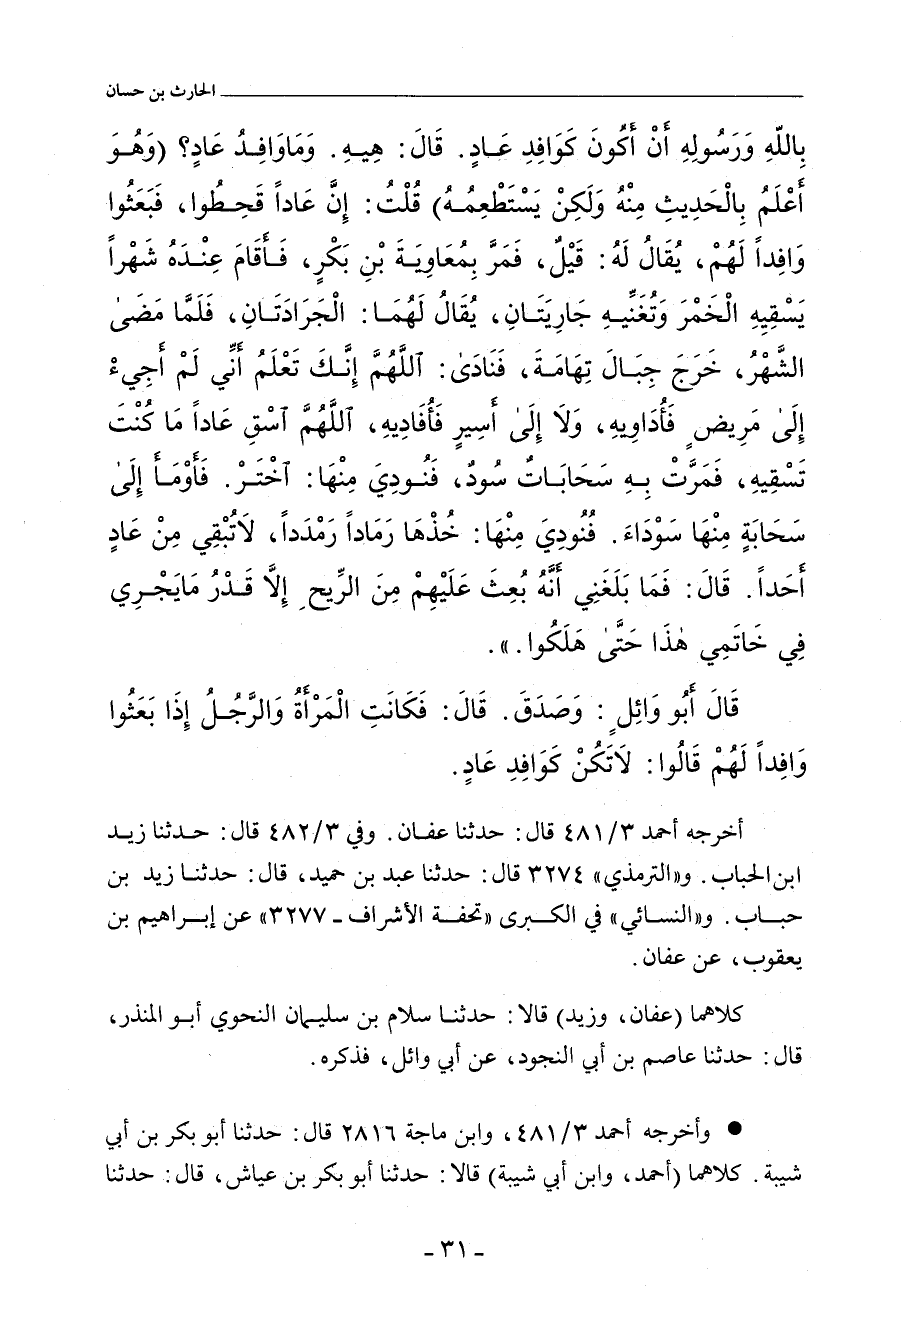 الحارث بن حسان
بِاللّٰهِ وَرَسُولِهِ أَنْ أَكُونَ كَوَافِدِ عَـادٍ. قَالَ: هِيـهِ. وَمَاوَافِـدُ عَادٍ؟ (وَهُـوَ
أَعْلَمُ بِالْحَدِيـثِ مِنْهُ وَلَكِنْ يَسْتَطْعِمُـهُ) قُلْتُ: إِنَّ عَاداً قَحِـطُوا، فَبَعَثُوا
وَافِداً لَهُمْ، يُقَالُ لَهُ: قَيْلٌ، فَمَرَّ بِمُعَاوِيَـةَ بْنِ بَكْرٍ، فَـأَقَامَ عِنْـدَهُ شَهْراً
يَسْقِيهِ الْخَمْرَ وَتُغَنِّيـهِ جَارِيَتَـانِ، يُقَالُ لَهُمَـا: الْجَرَادَتَـانِ، فَلَمَّا مَضَىٰ
الشَّهْرُ، خَرَجَ جِبَـالَ تِهَامَـةَ، فَنَادَىٰ: ٱللَّهُمَّ إِنَّـكَ تَعْلَمُ أَنِّي لَمْ أَجِيءْ
إِلَىٰ مَرِيضٍ فَأُدَاوِيهِ، وَلَا إِلَىٰ أَسِيرٍ فَأُفَادِيهِ، ٱللَّهُمَّ ٱسْقِ عَاداً مَا كُنْتَ
تَسْقِيهِ، فَمَرَّتْ بِـهِ سَحَابَـاتٌ سُودٌ، فَنُـودِيَ مِنْهَا: ٱخْتَـرْ. فَأَوْمَـأَ إِلَىٰ
سَحَابَةٍ مِنْهَا سَوْدَاءَ. فَنُودِيَ مِنْهَا: خُذْهَا رَمَاداً رَمْدَداً، لَاتُبْقِي مِنْ عَادٍ
أَحَداً. قَالَ: فَمَا بَلَغَنِي أَنَّهُ بُعِثَ عَلَيْهِمْ مِنَ الرِّيحِ إِلَّا قَـدْرُ مَايَجْـرِي
فِي خَاتَمِي هٰذَا حَتَّىٰ هَلَكُوا.».
قَالَ أَبُو وَائِلٍ: وَصَدَقَ. قَالَ: فَكَانَتِ الْمَرْأَةُ وَالرَّجُـلُ إِذَا بَعَثُوا
وَافِداً لَهُمْ قَالُوا: لَاتَكُنْ كَوَافِدِ عَادٍ.
أخرجه أحمد ٤٨١/٣ قال: حدثنا عفـان. وفي ٤٨٢/٣ قال: حـدثنا زيـد
ابن الحباب. و«الترمذي» ٣٢٧٤ قال: حدثنا عبد بن حميد، قال: حدثنـا زيد بن
حبـاب. و«النسـائي» في الكـبرى «تحفـة الأشراف - ٣٢٧٧» عن إبـراهيم بن
يعقوب، عن عفان.
كلاهما (عفان، وزيد) قالا: حدثنـا سلام بن سليمان النحوي أبـو المنذر،
قال: حدثنا عاصم بن أبي النجود، عن أبي وائل، فذكره.
● وأخرجه أحمد ٤٨١/٣، وابن ماجة ٢٨١٦ قال: حدثنا أبو بكر بن أبي
شيبة. كلاهما (أحمد، وابن أبي شيبة) قالا: حدثنا أبو بكر بن عياش، قال: حدثنا
- ٣١ -